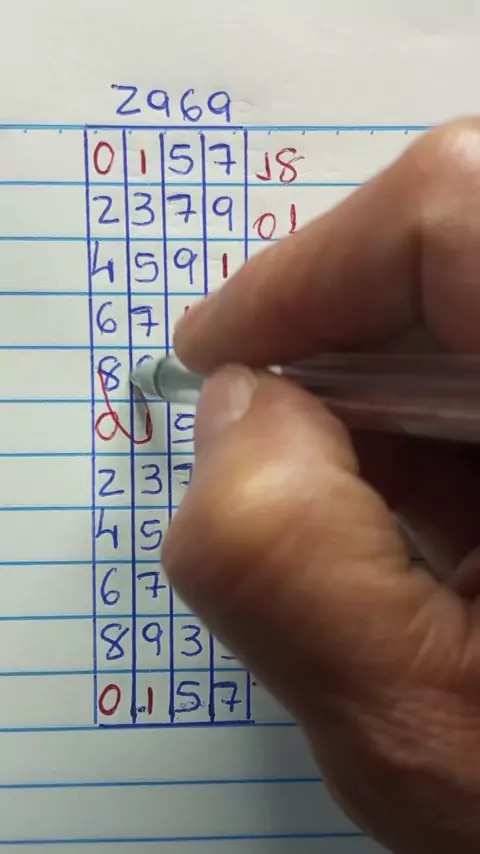 2969
0 1 5 7 18
2 3 7 9 01
4 5 9 1
6 7
8
0 1 5
2 3 7
4 5
6 7
8 9 3
0 1 5 7